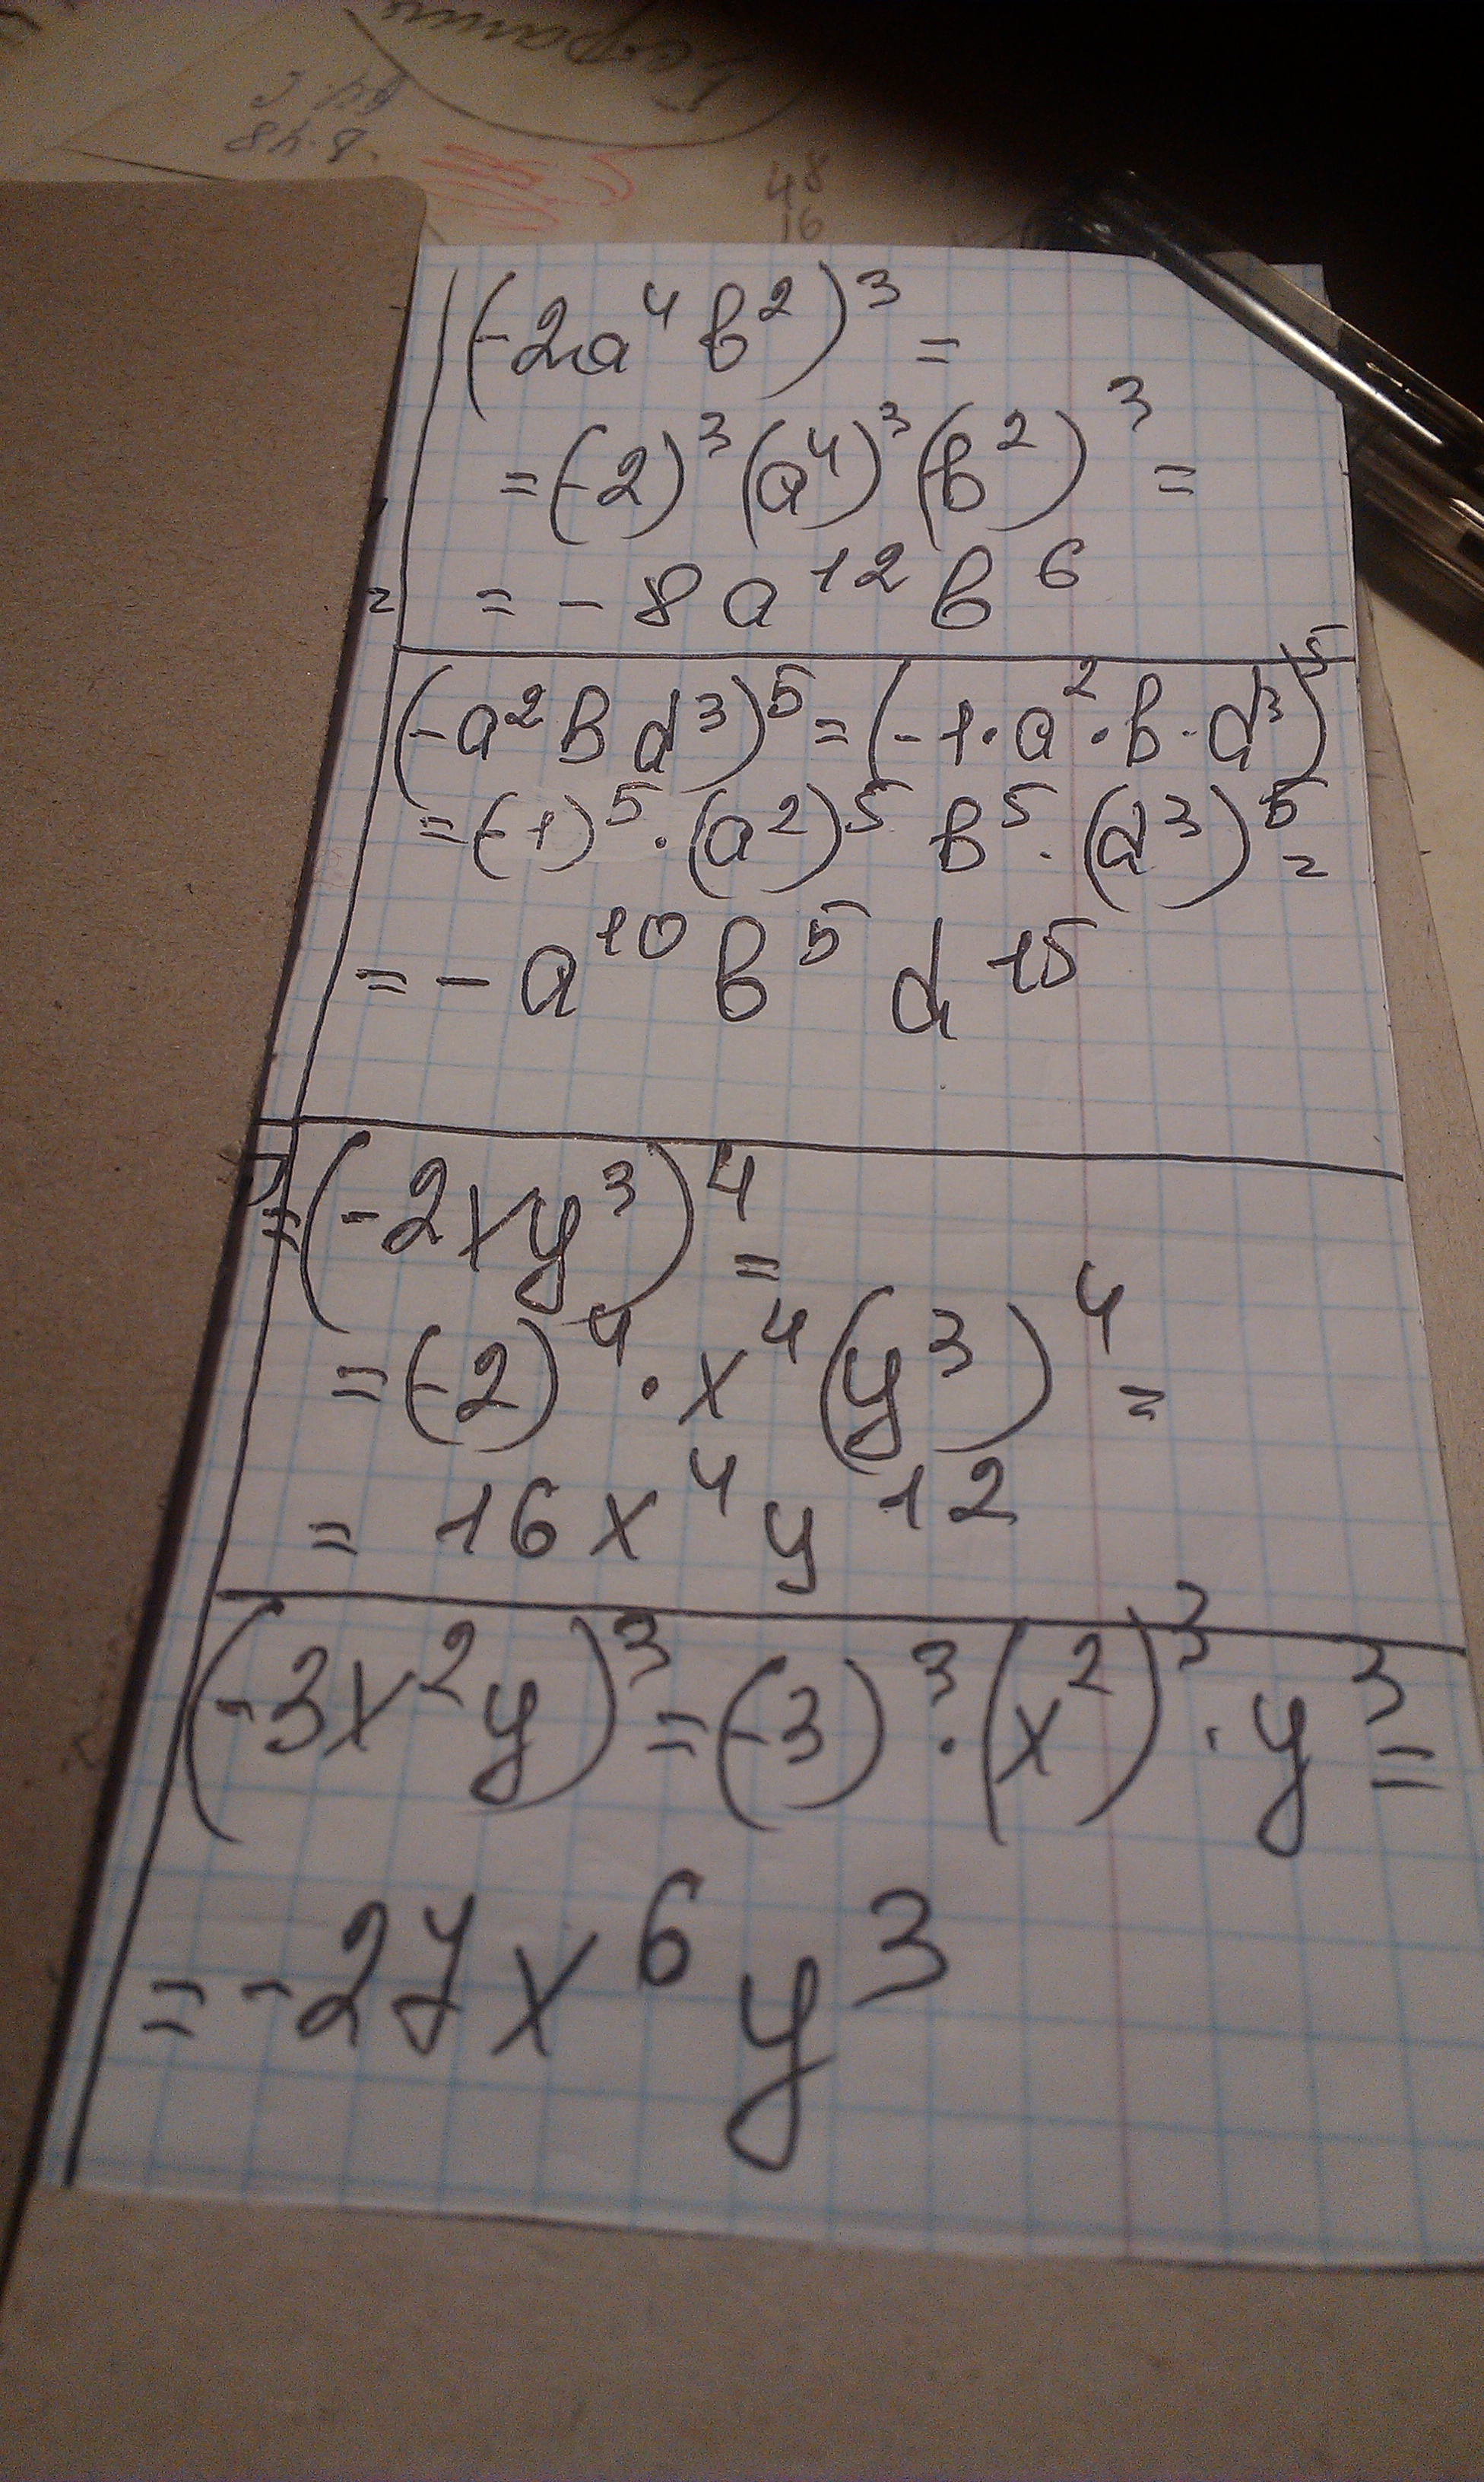 48
16
(-2a⁴b²)³ =
= (-2)³ (a⁴)³ (b²)³ =
= -8a¹²b⁶
(-a²bd³)⁵ = (-1·a²·b·d³)⁵
= (-1)⁵·(a²)⁵ b⁵·(d³)⁵ =
= -a¹⁰b⁵d¹⁵
(-2xy³)⁴ =
= (-2)⁴·x⁴(y³)⁴ =
= 16x⁴y¹²
(-3x²y)³ = (-3)³·(x²)³·y³ =
= -27x⁶y³